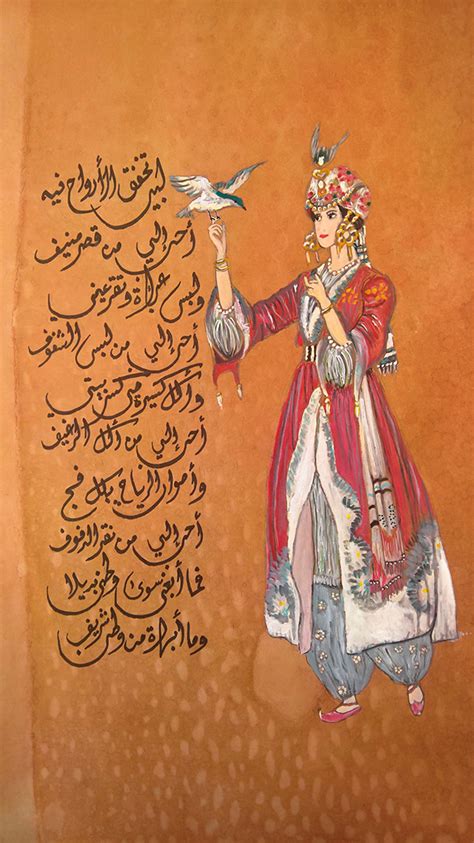 لبيت تخفق الأرواح فيه
أحب إلي من قصر منيف
ولبس عباءة وتقر عيني
أحب إلي من لبس الشفوف
وأكل كسيرة من كسر بيتي
أحب إلي من أكل الرغيف
وأصوات الرياح بكل فج
أحب إلي من نقر الدفوف
فما أبغي سوى وطني بديلا
وما أبهاه من وطن شريف